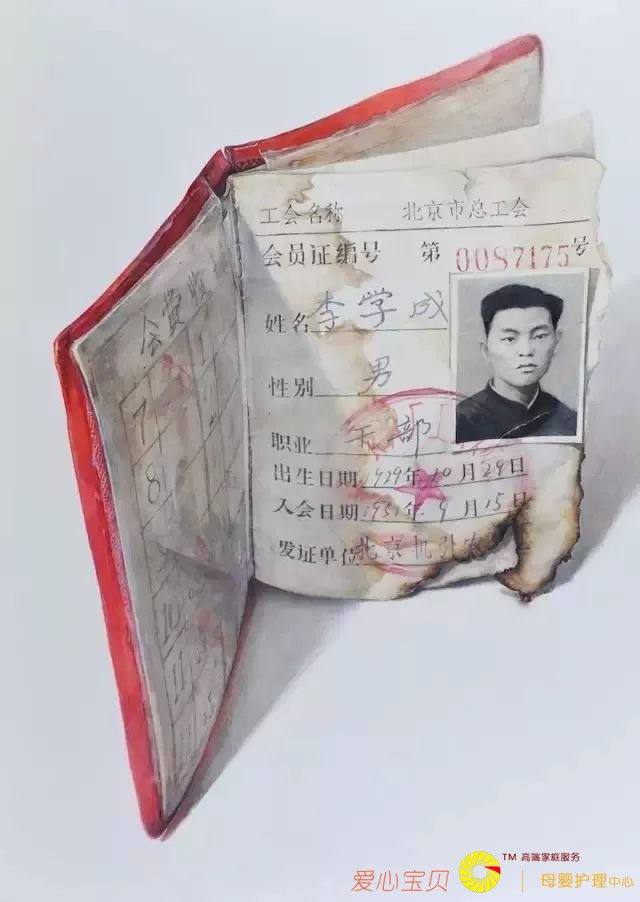 会费收
7
8
10
11
工会名称 北京市总工会
会员证编号 第0087175号
姓名 李学成
性别 男
职业 干部
出生日期 1929年10月29日
入会日期 1951年9月15日
发证单位 北京机引农
爱心宝贝 TM 高端家庭服务
母婴护理中心